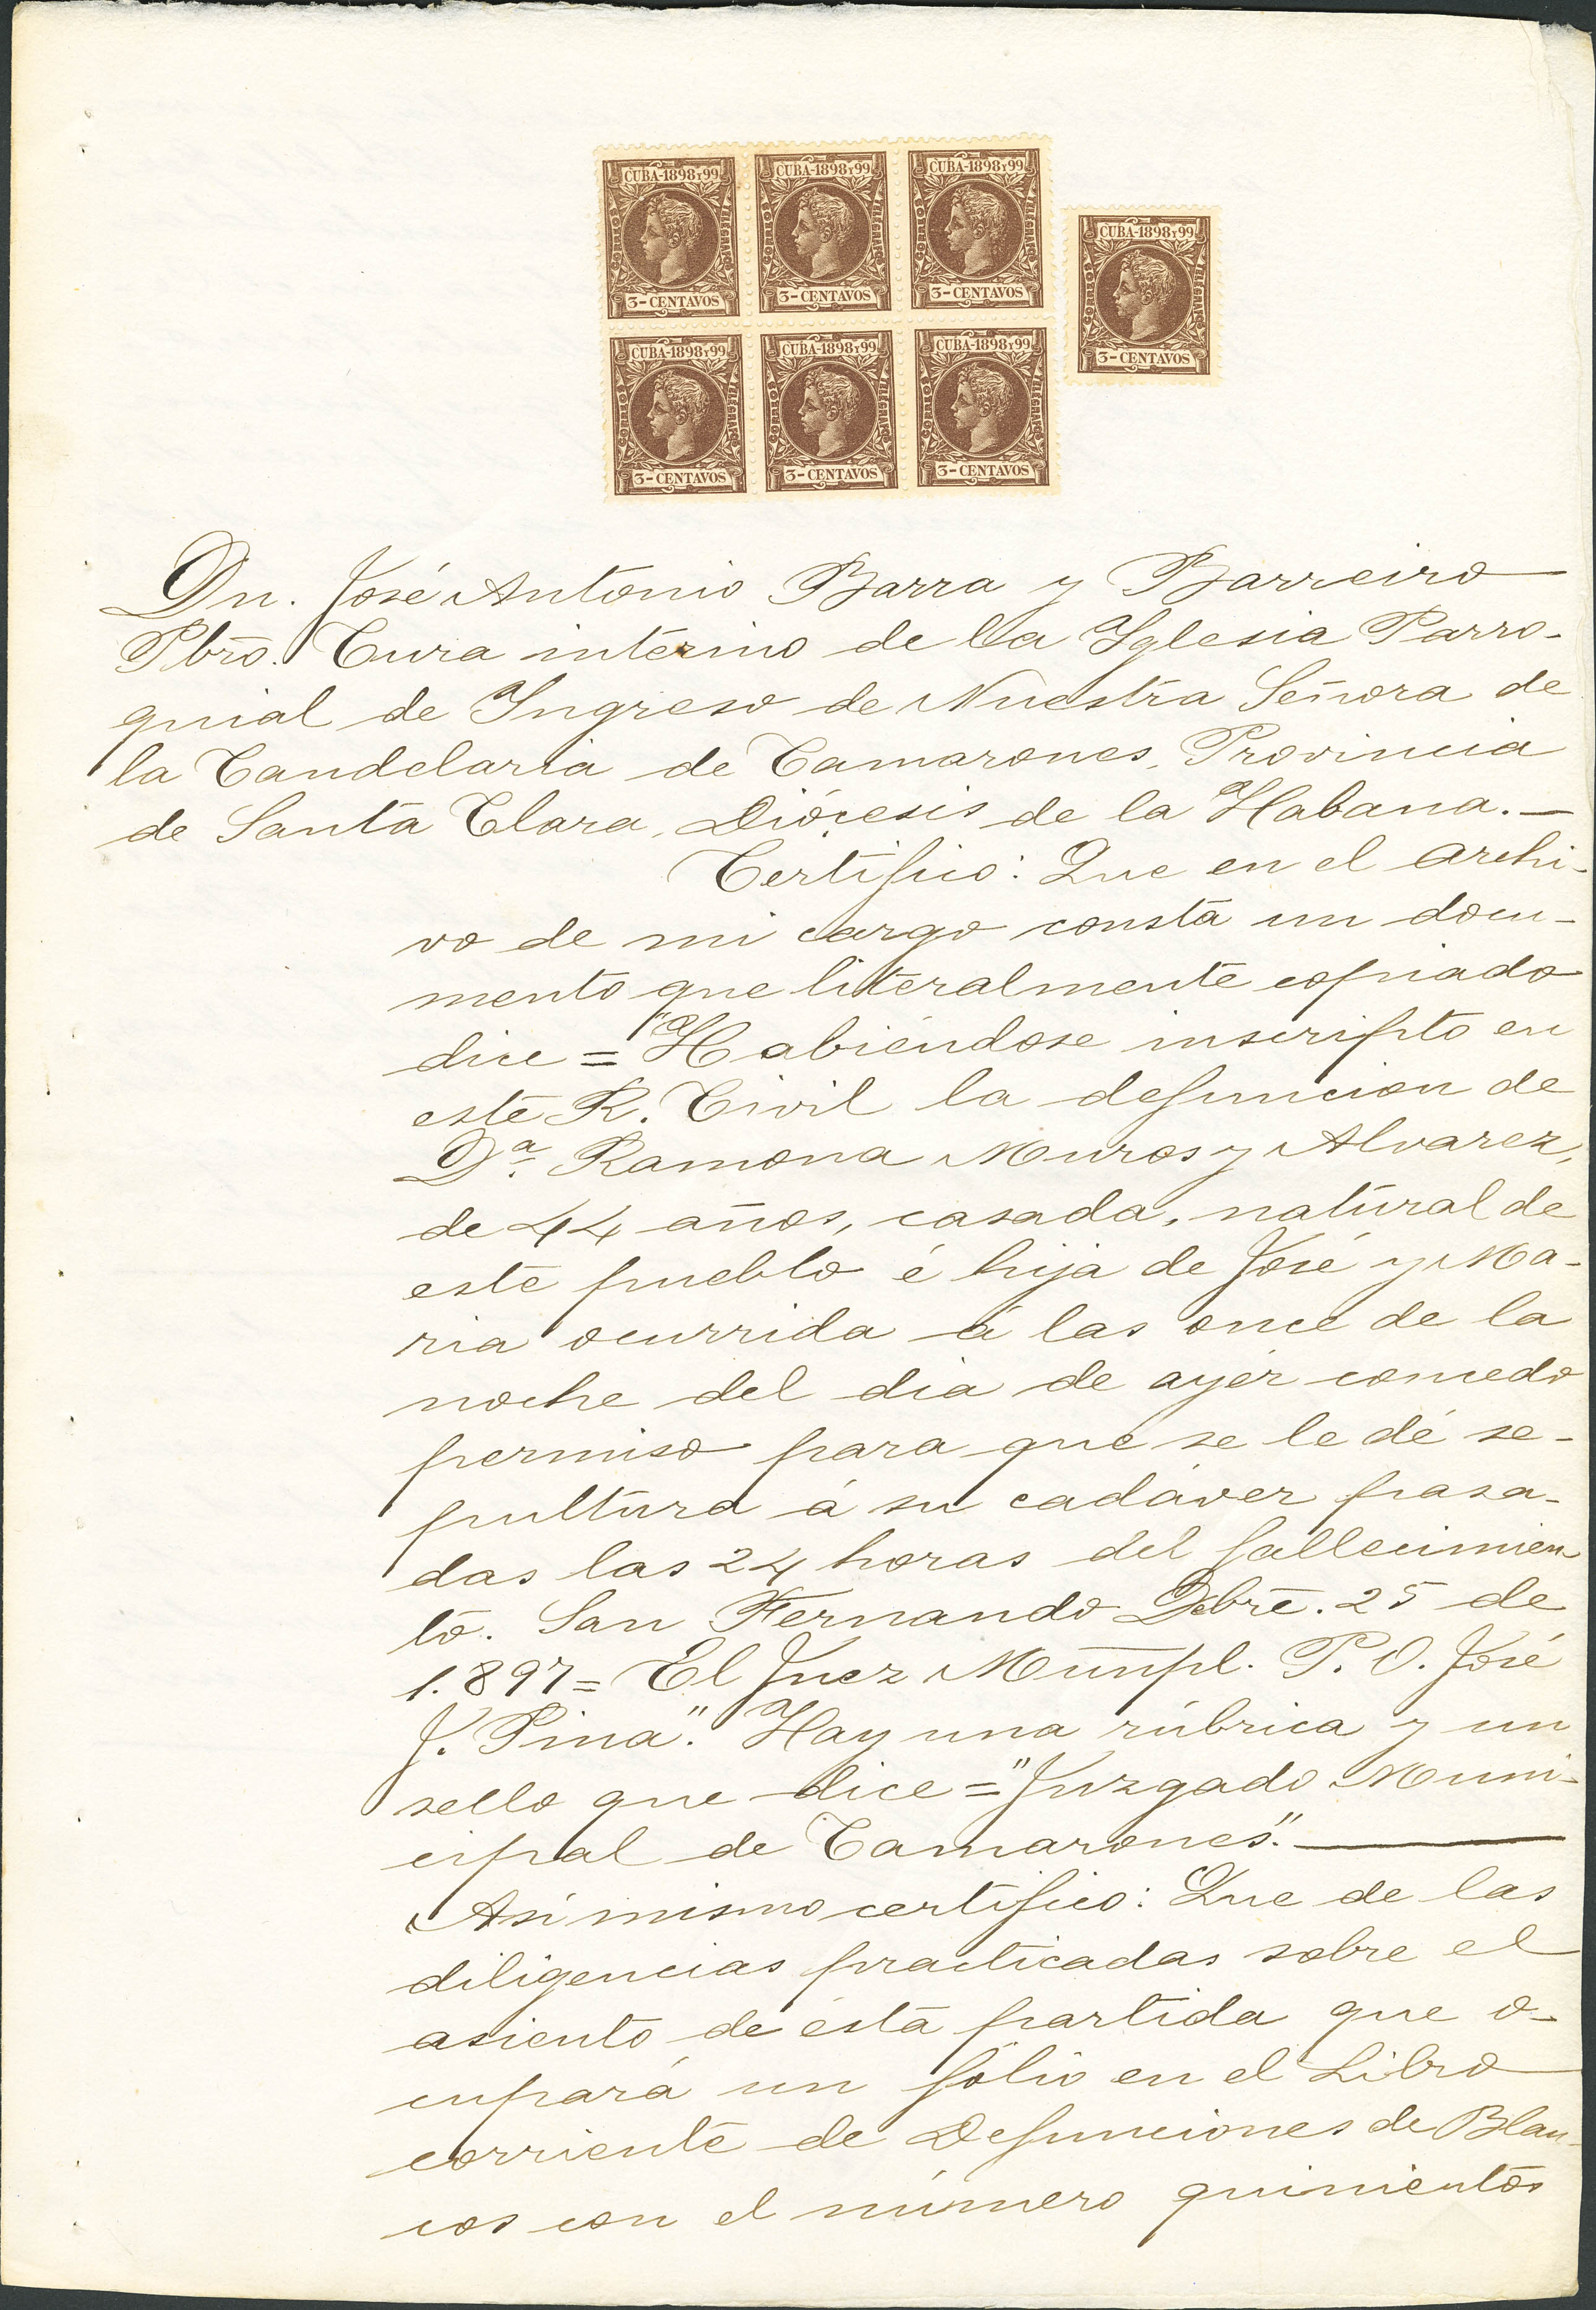 CUBA-1898 Y 99 CUBA-1898 Y 99 CUBA-1898 Y 99
CORREOS TELEGRAFOS CORREOS TELEGRAFOS CORREOS TELEGRAFOS
3-CENTAVOS 3-CENTAVOS 3-CENTAVOS
CUBA-1898 Y 99
CORREOS TELEGRAFOS
3-CENTAVOS
CUBA-1898 Y 99 CUBA-1898 Y 99 CUBA-1898 Y 99
CORREOS TELEGRAFOS CORREOS TELEGRAFOS CORREOS TELEGRAFOS
3-CENTAVOS 3-CENTAVOS 3-CENTAVOS
Dn. José Antonio Barra y Barreiro
Pbro. Cura interino de la Iglesia Parro-
quial de Ingreso de Nuestra Señora de
la Candelaria de Camarones, Provincia
de Santa Clara, Diócesis de la Habana.—
Certifico: Que en el archi-
vo de mi cargo consta un docu-
mento que literalmente copiado
dice = "Habiéndose inscripto en
este R. Civil la defuncion de
Dª. Ramona Muros y Alvarez,
de 44 años, casada, natural de
este pueblo é hija de José y Ma-
ria ocurrida á las once de la
noche del dia de ayer concedo
permiso para que se le dé se-
pultura á su cadáver pasa-
das las 24 horas del fallecimien
to. San Fernando Dbre. 25 de
1.897= El Juez Munpl. P. O. José
J. Pina". Hay una rúbrica y un
sello que dice = "Juzgado Muni-
cipal de Camarones".
Asi mismo certifico: Que de las
diligencias practicadas sobre el
asiento de ésta partida que o-
cupará un fólio en el Libro
corriente de Defunciones de Blan-
cos con el número quinientos